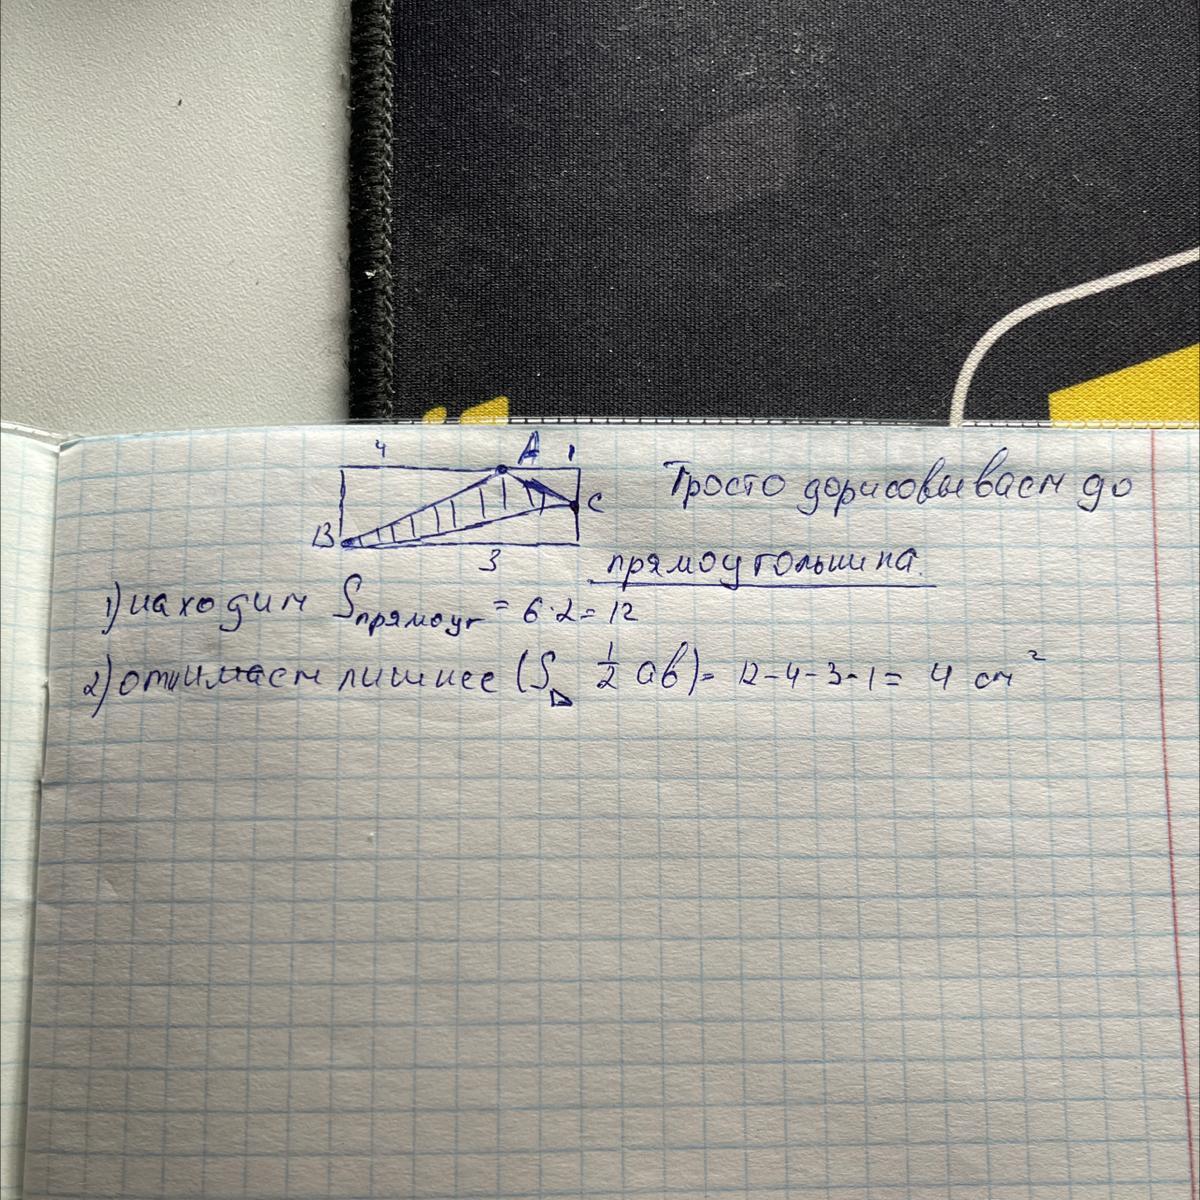 4 A 1
B C
3
Просто дорисовываем до
прямоугольника.
1) находим Sпрямоуг = 6·2=12
2) отнимаем лишнее (S▷ 1/2 ab)= 12-4-3-1= 4 см²